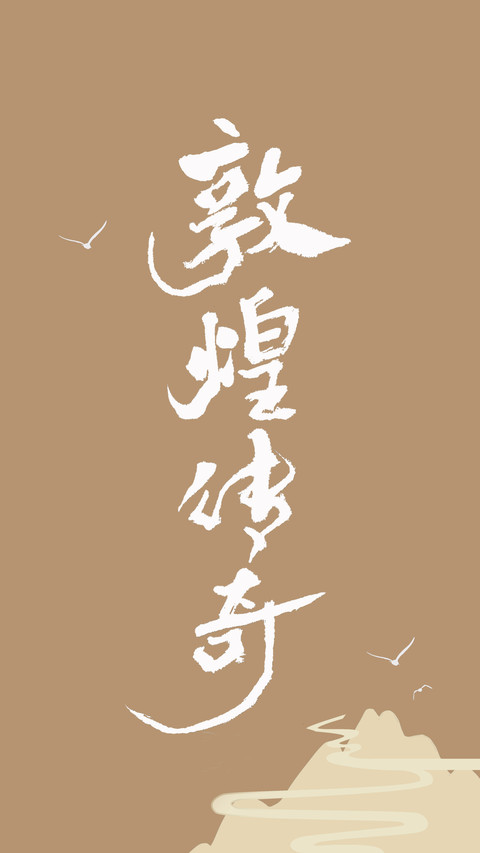 敦煌传奇